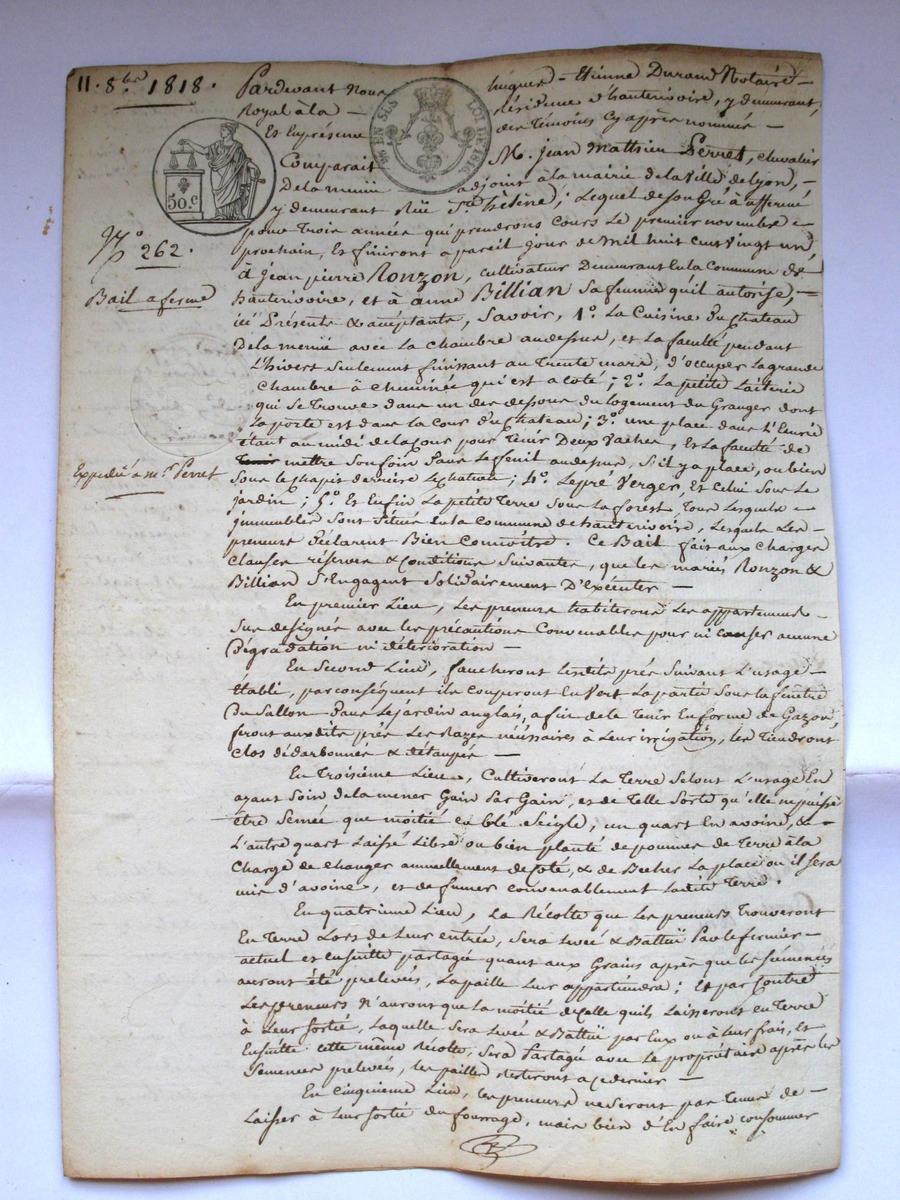 11. 8bre 1818.
50.c
EN SUS LOI DE 1816
No 262.
Bail a ferme
Expédié a mr. Perret
Pardevant Nous hugues-Etienne Durand Notaire
Royal à la Résidence d'hauterivoire, y demeurant,
Et En présence des Témoins Cy après nommés
Comparait M. Jean Mathieu Perret, chevalier
De la menue adjoint à la mairie de la Ville de Lyon,
y demeurant Rüe Ste hélène; Lequel de son Gré à affermé
pour Trois années qui prendrons cours Le premier novembre
prochain, Et finiront a pareil Jour de Mil huit cent vingt un,
à Jean pierre Ronzon, cultivateur Demeurant En la Commune de
hauterivoire, et à anne Billian sa femme qu'il autorise,
icí Présents & acceptants, Savoir, 1o. La Cuisine Du Chateau
De la menue avec la Chambre audessus, et La faculté pendant
L'hivert seulement finissant au Trente mars, d'occuper La grande
Chambre à cheminée qui est a coté; 2o. La petite Laiterie
qui se Trouve dans un des dessous du logement du Granger dont
La porte est dans la Cour du Chateau; 3o. une place dans L'Ecurie
étant au midi de la Cour pour Tenir Deux Vaches, Et La faculté de
Tenir mettre son foin Sur Le fenil audessus, s'il y a place, ou bien
Sous le chapis derrière le chateau; 4o. Le pré Verger, Et Celui sous Le
jardin; 5o. Et Enfin La petite Terre Sous La forest, Tous Lesquels
immeubles Sont Situés En la Commune de hauterivoire, Lesquels Les
preneurs Déclarent Bien Connoître. Ce Bail fait aux Charges
Clauses réserves & Conditions Suivantes, que les mariés Ronzon &
Billian S'Engagent Solidairement D'Exécuter
En premier Lieu, Les preneurs habiterons Les appartements
Sus designés avec les précautions Convenables pour ni causer aucune
Dégradation ni détérioration
En Second Lieu, faucheront lesdits prés Suivant L'usage
établi, par conséquent ils Couperont En Vert La partie Sous la fenêtre
Du Sallon Dans Le jardin anglais, afin de le Tenir En forme de Gazon,
feront auxdits prés Les Razes nécessaires à Leur irrigation, les Tiendront
Clos dédarbonnés & détaupés
En Troisieme Lieu, Cultiveront La Terre Selont L'usage En
ayant Soin de la mener Gain Par Gain, et de Telle Sorte qu'elle ne puisse
être Semée que moitié en blé Seigle, un quart En avoine, &
L'autre quart Laissé Libre ou bien planté de pommes de Terre à la
Charge de changer annuellement de coté, & de Becher La place ou il sera
mis d'avoine, et de fumer convenablement Ladite Terre.
En quatrieme Lieu, La Récolte que Les preneurs Trouveront
En Terre Lors de Leur entrée, sera Levée & Battue Par le fermier
actuel et ensuitte partagée quant aux Grains après que les Sémences
auront été prelevées, La paille Leur appartiendra; Et par Contre
Les preneurs N'auront que La moitié de Celle quils Laisseront en Terre
à Leur Sortie, Laquelle Sera Levée & Battue par Eux ou à Leur frais, et
Ensuitte Cette même Récolte, Sera Partagée avec Le propriétaire après les
Semences prelevées, les pailles Resteront a ce dernier
En Cinquieme Lieu, les preneurs ne Seront pas Tenus de
Laisser à Leur Sortie du fourrage, mais bien d'En faire consommer